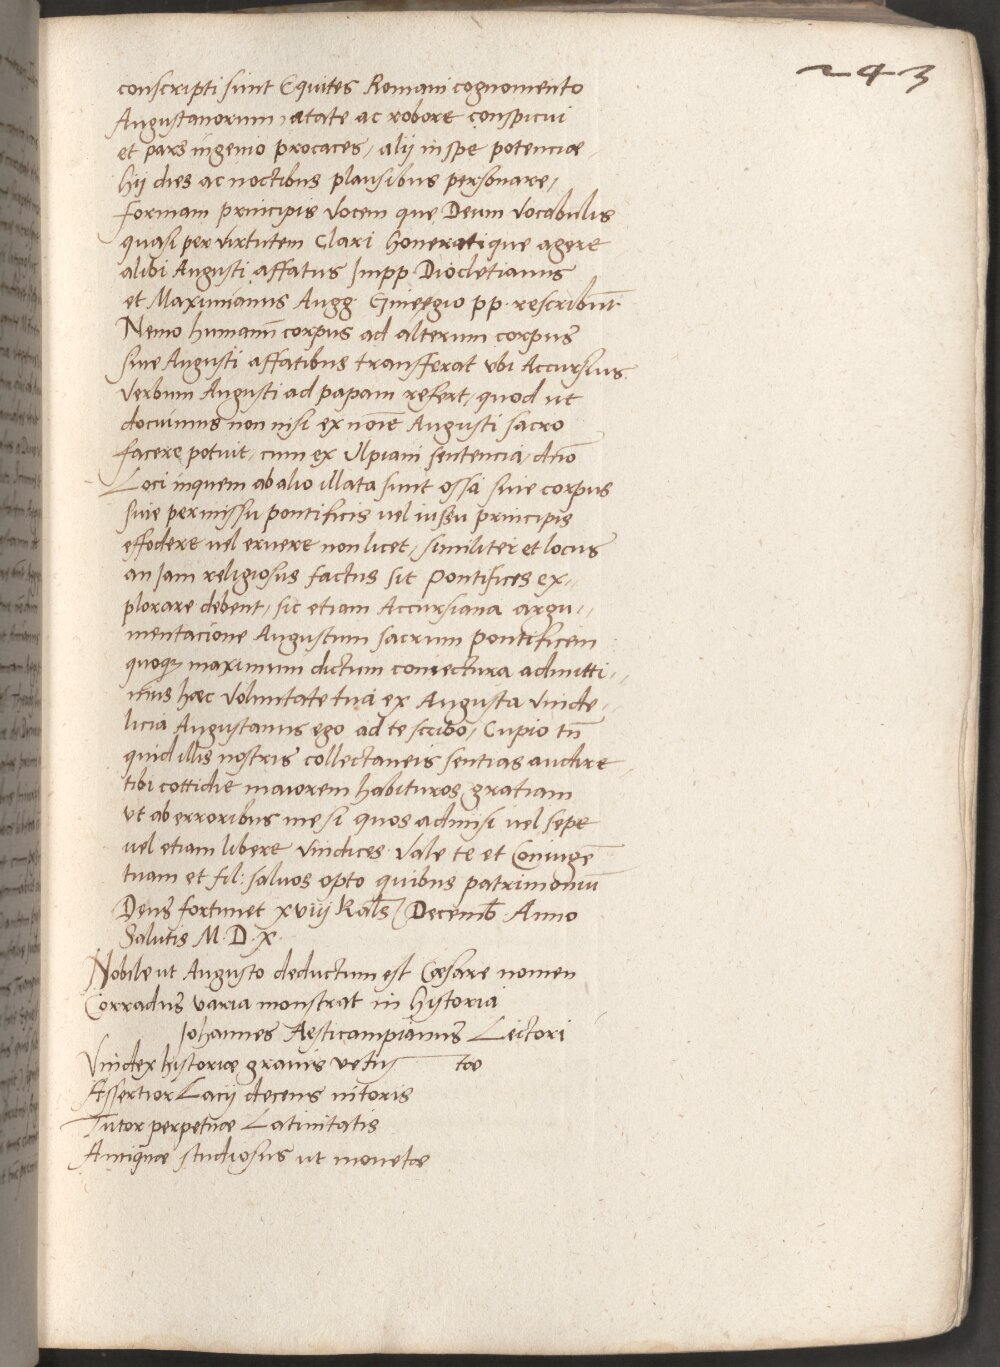 243
conscripti sunt Equites Romani cognomento
Augustanorum, ætate ac robore conspicui
et pars ingenio procaces, alij in spe potenciæ,
hij dies ac noctibus plausibus personare,
formam principis vocem que Deum vocabulis
quasi per virtutem Clari honeratique agere
alibi Augusti affatus Impp Diocletianus
et Maximianus Augg. Gineegio pp. rescribunt̄.
Nemo humanū corpus ad alterum corpus
sine Augusti affatibus transfferat vbi Accursius
verbum Augusti ad papam refert, quod ut
docuimus non nisi ex noīe Augusti sacro
facere potuit, cum ex Ulpiani sentencia, dn̄o
Loci in quem ab alio illata sunt ossa siue corpus
siue permissu pontificis uel iussu principis
effodere uel eruere non licet, similiter et locus
an Jam religiosus factus sit Pontifices ex,,
plorare debent, sic etiam Accursiana argu,,
mentacione Augustum sacrum pontificem
quoqz maximum dictum coniectura admitti,,
mus hæc voluntate tua ex Augusta vinde,,
licia Augustanus ego ad te scribo, Cupio tn̄
quid illis nostris collectaneis sentias audire,
tibi cottidie maiorem habituros gratiam
vt ab erroribus me si quos admisi uel sepe
uel etiam libere vindices. Vale te et Coniugē
tuam et fil: saluos opto quibus patrimoniū
Deus fortunet xviij Kals Decemb. Anno
Salutis M.D.X.
Nobile ut Augusto deductum est Cæsare nomen
Corradus varia monstrat in historia
Johannes Aesticampianus Lectori
Vindex historiæ grauis vetustæ
Assertior Lacij decens nitoris
Tutor perpetuæ Latinitatis
Antiquæ studiosus ut monetæ